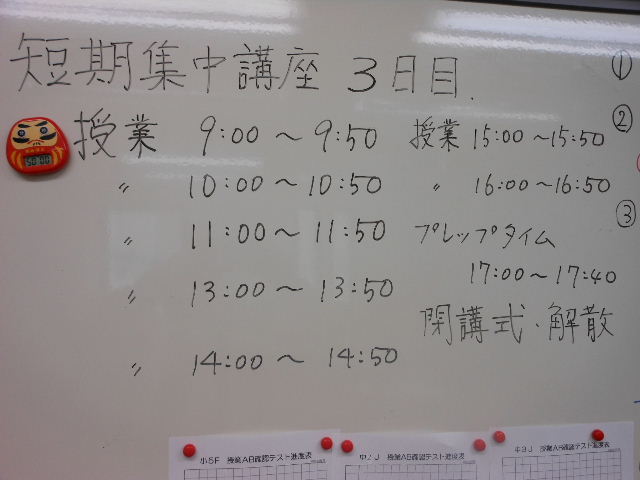 短期集中講座 3日目.
授業 9:00 〜 9:50
〃 10:00 〜 10:50
〃 11:00 〜 11:50
〃 13:00 〜 13:50
〃 14:00 〜 14:50
授業 15:00 〜 15:50
〃 16:00 〜 16:50
プレップタイム
17:00 〜 17:40
閉講式・解散
①
②
③
50:00
小5F 授業AB確認テスト進度表
授業AB確認テスト進度表
授業AB確認テスト進度表